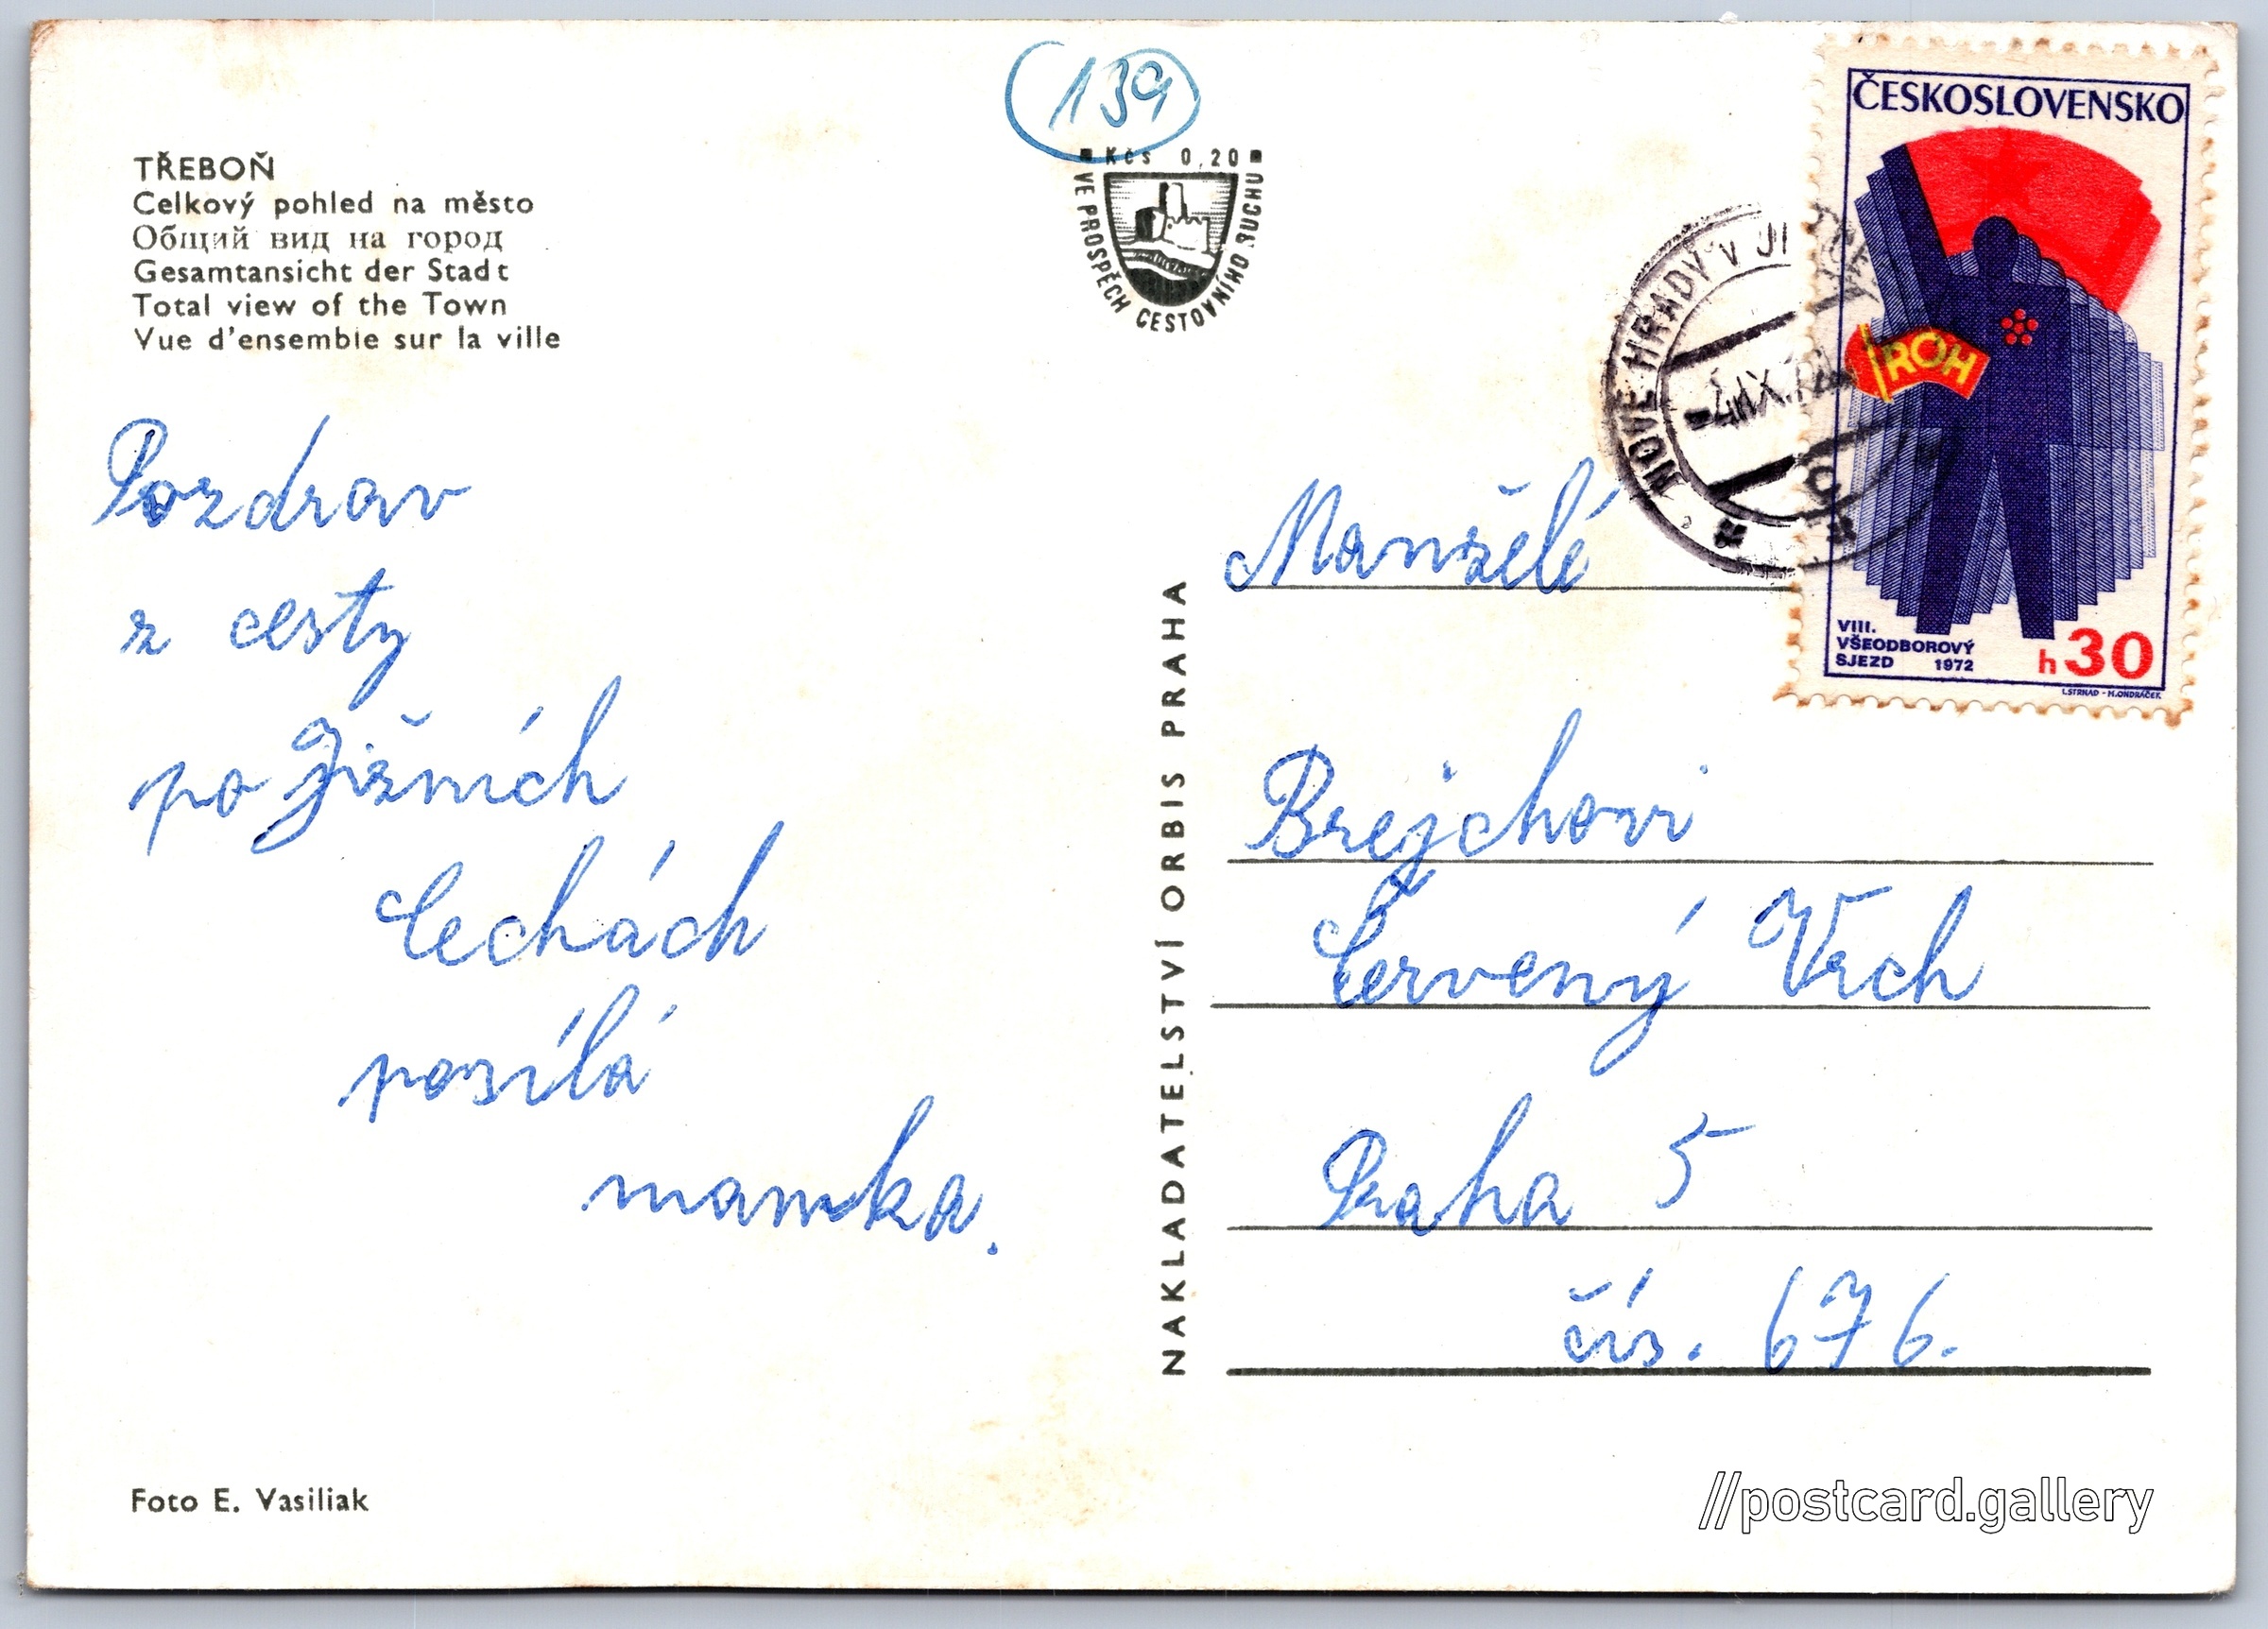 139
Kčs 0,20
VE PROSPĚCH CESTOVNÍHO RUCHU
TŘEBOŇ
Celkový pohled na město
Общий вид на город
Gesamtansicht der Stadt
Total view of the Town
Vue d'ensemble sur la ville
Pozdrav
z cesty
po Jižních
Čechách
posílá
mamka.
Foto E. Vasiliak
NAKLADATELSTVÍ ORBIS PRAHA
ČESKOSLOVENSKO
ROH
VIII.
VŠEODBOROVÝ
SJEZD 1972
h 30
I.STRNAD - M.ONDRÁČEK
NOVÉ HRADY V JI
Manželé
Brejchovi
Červený Vrch
Praha 5
čís. 676.
//postcard.gallery